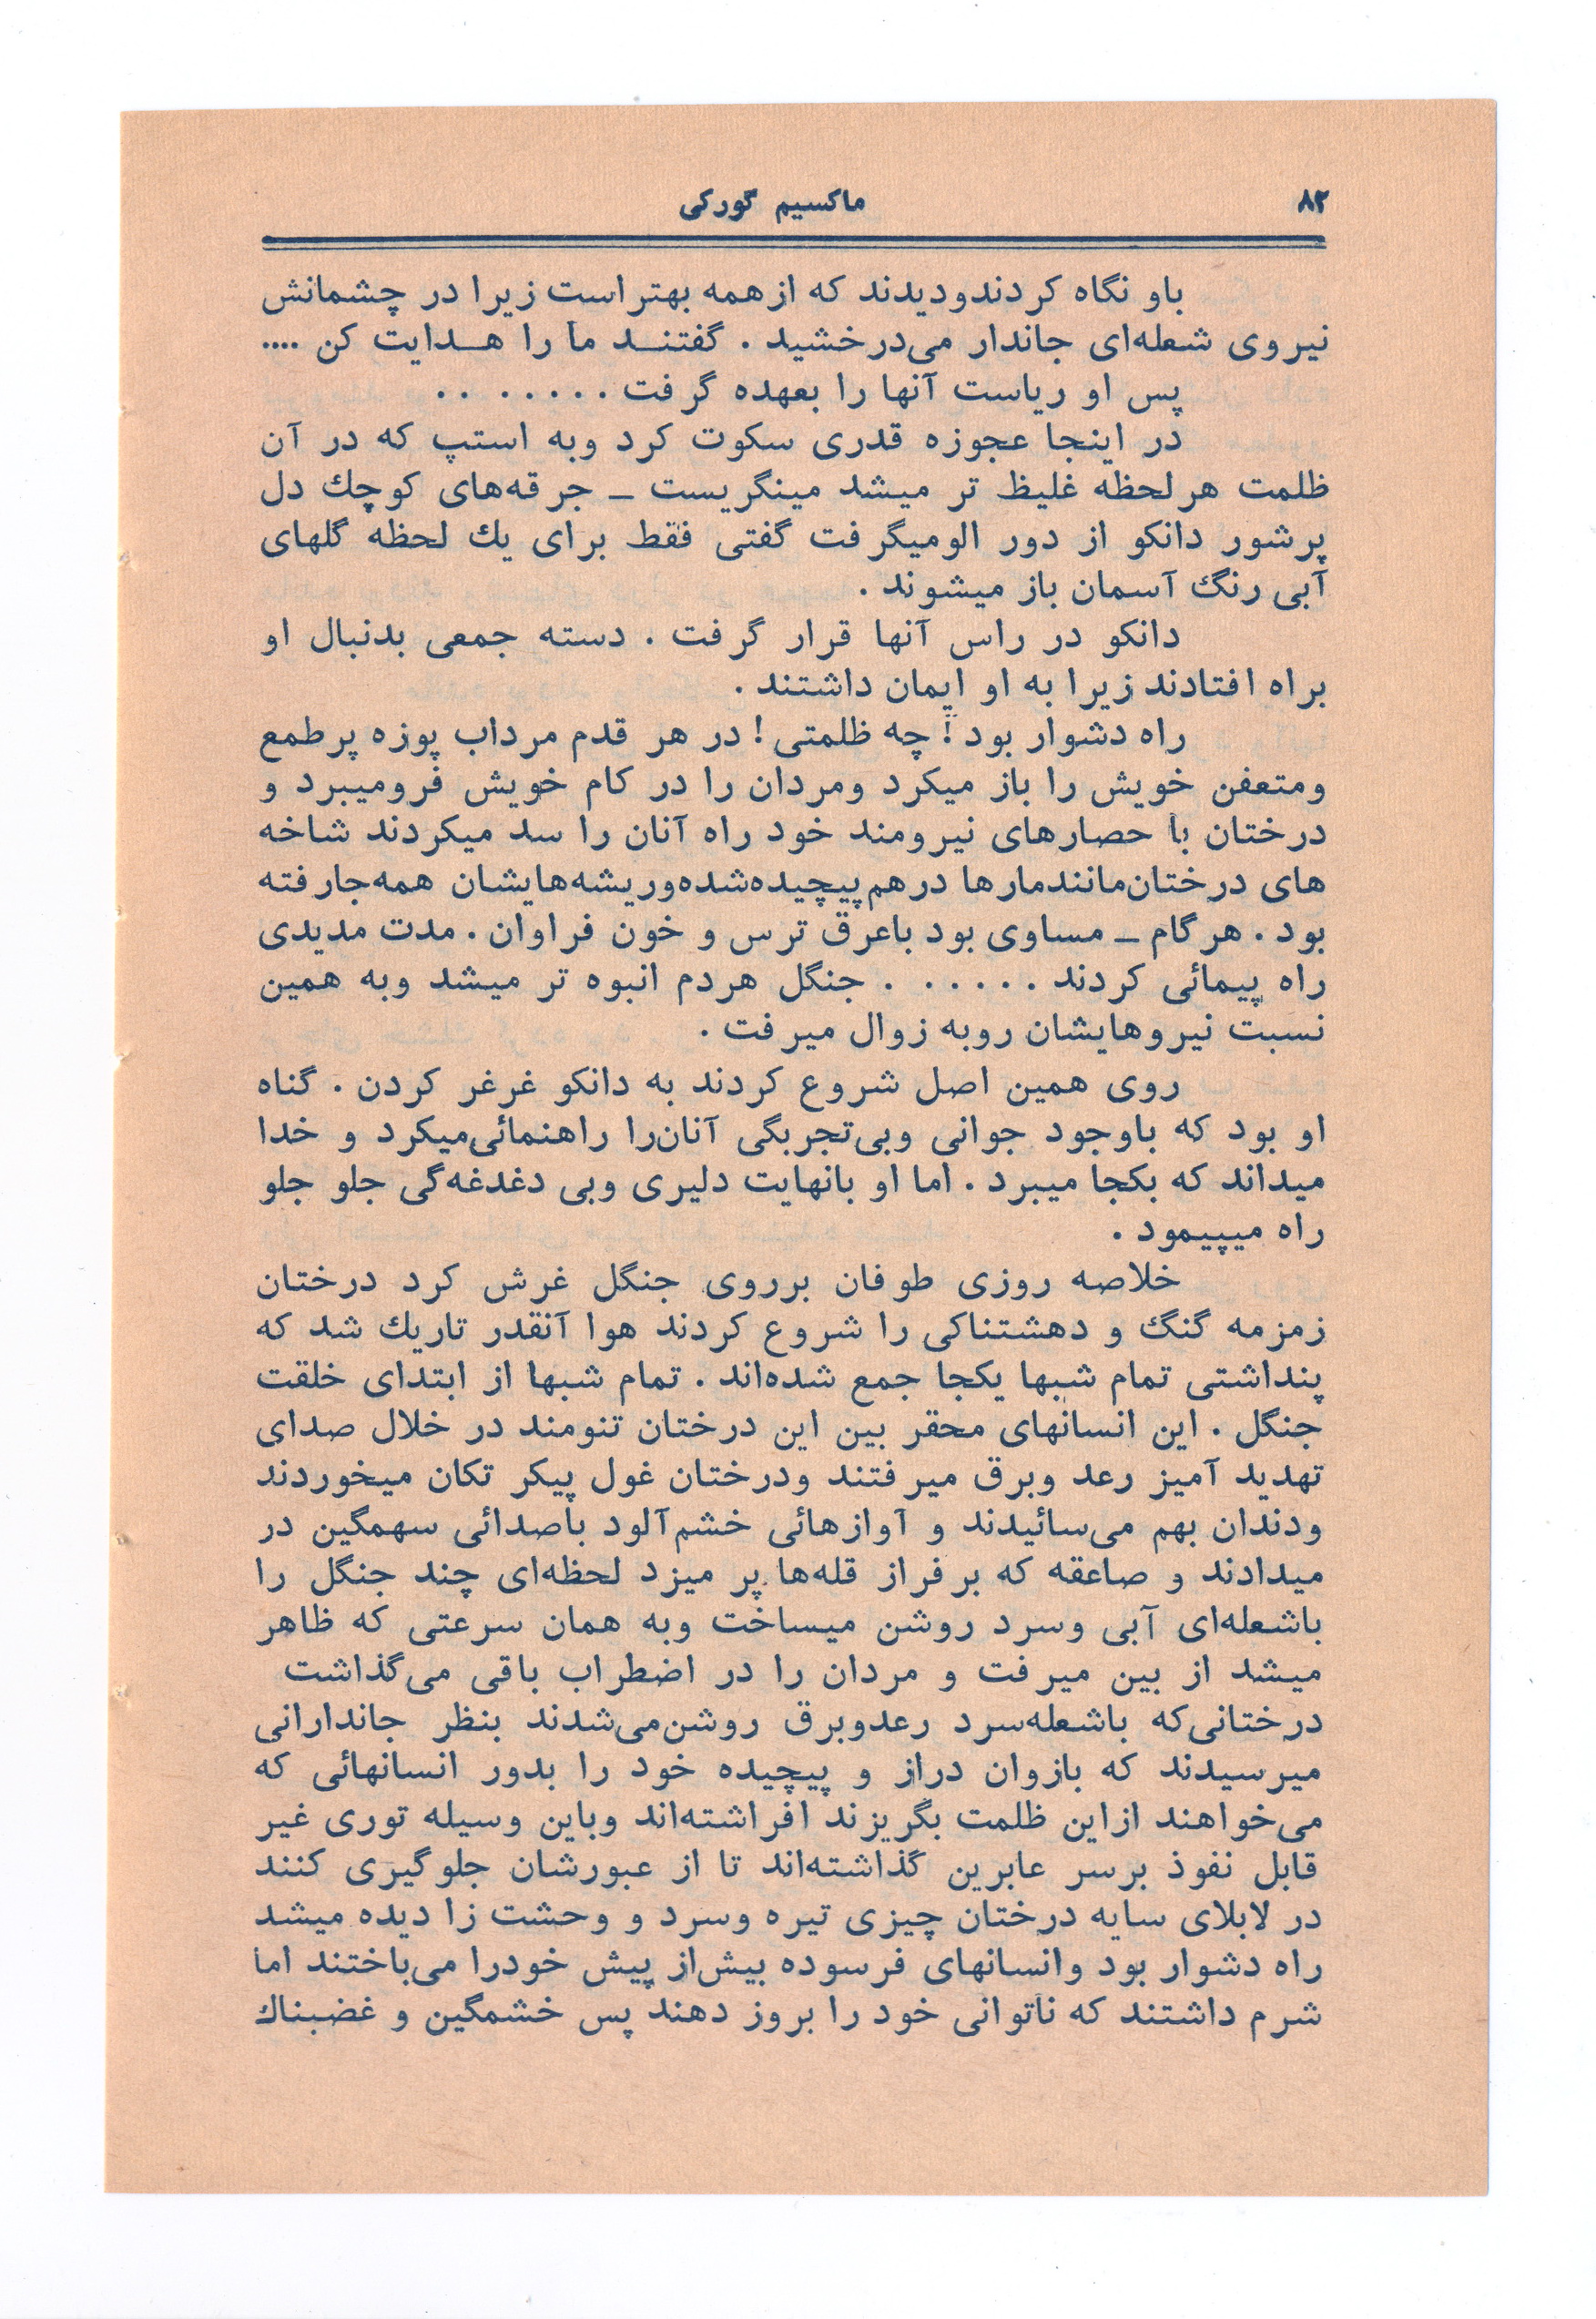 ۸۲
ماکسیم گورکی
باو نگاه کردندودیدند که ازهمه بهتراست زیرا در چشمانش
نیروی شعله‌ای جاندار می‌درخشید . گفتنــد ما را هــدایت کن ....
پس او ریاست آنها را بعهده گرفت . . . . . . . .
در اینجا عجوزه قدری سکوت کرد وبه استپ که در آن
ظلمت هرلحظه غلیظ تر میشد مینگریست ــ جرقه‌های کوچك دل
پرشور دانکو از دور الومیگرفت گفتی فقط برای یك لحظه گلهای
آبی رنگ آسمان باز میشوند .
دانکو در راس آنها قرار گرفت . دسته جمعی بدنبال او
براه افتادند زیرا به او ایمان داشتند .
راه دشوار بود ! چه ظلمتی ! در هر قدم مرداب پوزه پرطمع
ومتعفن خویش را باز میکرد ومردان را در کام خویش فرومیبرد و
درختان با حصارهای نیرومند خود راه آنان را سد میکردند شاخه
های درختان‌مانندمارها درهم‌پیچیده‌شده‌وریشه‌هایشان همه‌جارفته
بود . هرگام ــ مساوی بود باعرق ترس و خون فراوان . مدت مدیدی
راه پیمائی کردند . . . . . . . جنگل هردم انبوه تر میشد وبه همین
نسبت نیروهایشان روبه زوال میرفت .
روی همین اصل شروع کردند به دانکو غرغر کردن . گناه
او بود که باوجود جوانی وبی‌تجربگی آنان‌را راهنمائی‌میکرد و خدا
میداند که بکجا میبرد . اما او بانهایت دلیری وبی دغدغه‌گی جلو جلو
راه میپیمود .
خلاصه روزی طوفان برروی جنگل غرش کرد درختان
زمزمه گنگ و دهشتناکی را شروع کردند هوا آنقدر تاریك شد که
پنداشتی تمام شبها یکجا جمع شده‌اند . تمام شبها از ابتدای خلقت
جنگل . این انسانهای محقر بین این درختان تنومند در خلال صدای
تهدید آمیز رعد وبرق میرفتند ودرختان غول پیکر تکان میخوردند
ودندان بهم می‌سائیدند و آوازهائی خشم‌آلود باصدائی سهمگین در
میدادند و صاعقه که برفراز قله‌ها پر میزد لحظه‌ای چند جنگل را
باشعله‌ای آبی وسرد روشن میساخت وبه همان سرعتی که ظاهر
میشد از بین میرفت و مردان را در اضطراب باقی می‌گذاشت
درختانی‌که باشعله‌سرد رعدوبرق روشن‌می‌شدند بنظر جاندارانی
میرسیدند که بازوان دراز و پیچیده خود را بدور انسانهائی که
می‌خواهند ازاین ظلمت بگریزند افراشته‌اند وباین وسیله توری غیر
قابل نفوذ برسر عابرین گذاشته‌اند تا از عبورشان جلوگیری کنند
در لابلای سایه درختان چیزی تیره وسرد و وحشت زا دیده میشد
راه دشوار بود وانسانهای فرسوده بیش‌از پیش خودرا می‌باختند اما
شرم داشتند که ناتوانی خود را بروز دهند پس خشمگین و غضبناك